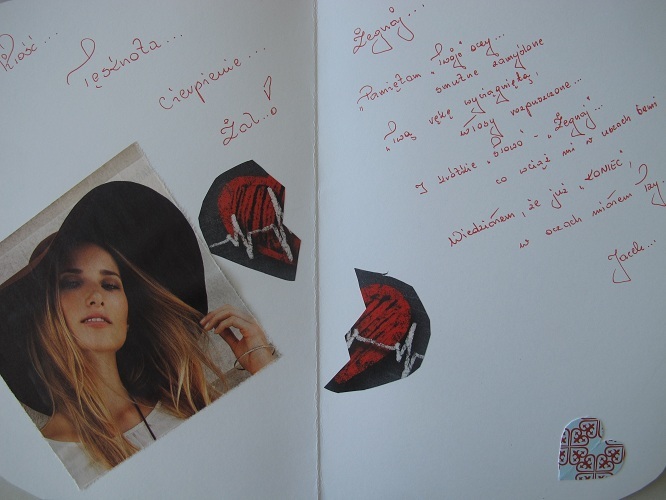 Miłość...
Tęsknota...
Cierpienie...
Żal...!
Żegnaj...
"Pamiętam" Twoje oczy...
smutne zamyślone
Twą rękę wyciągniętą,
włosy rozpuszczone...
I ludzkie "słowo" - "Żegnaj"...
co wciąż mi w uszach brzmi
Wiedziałem, że już "KONIEC",
w oczach miałem łzy...
Jacek...